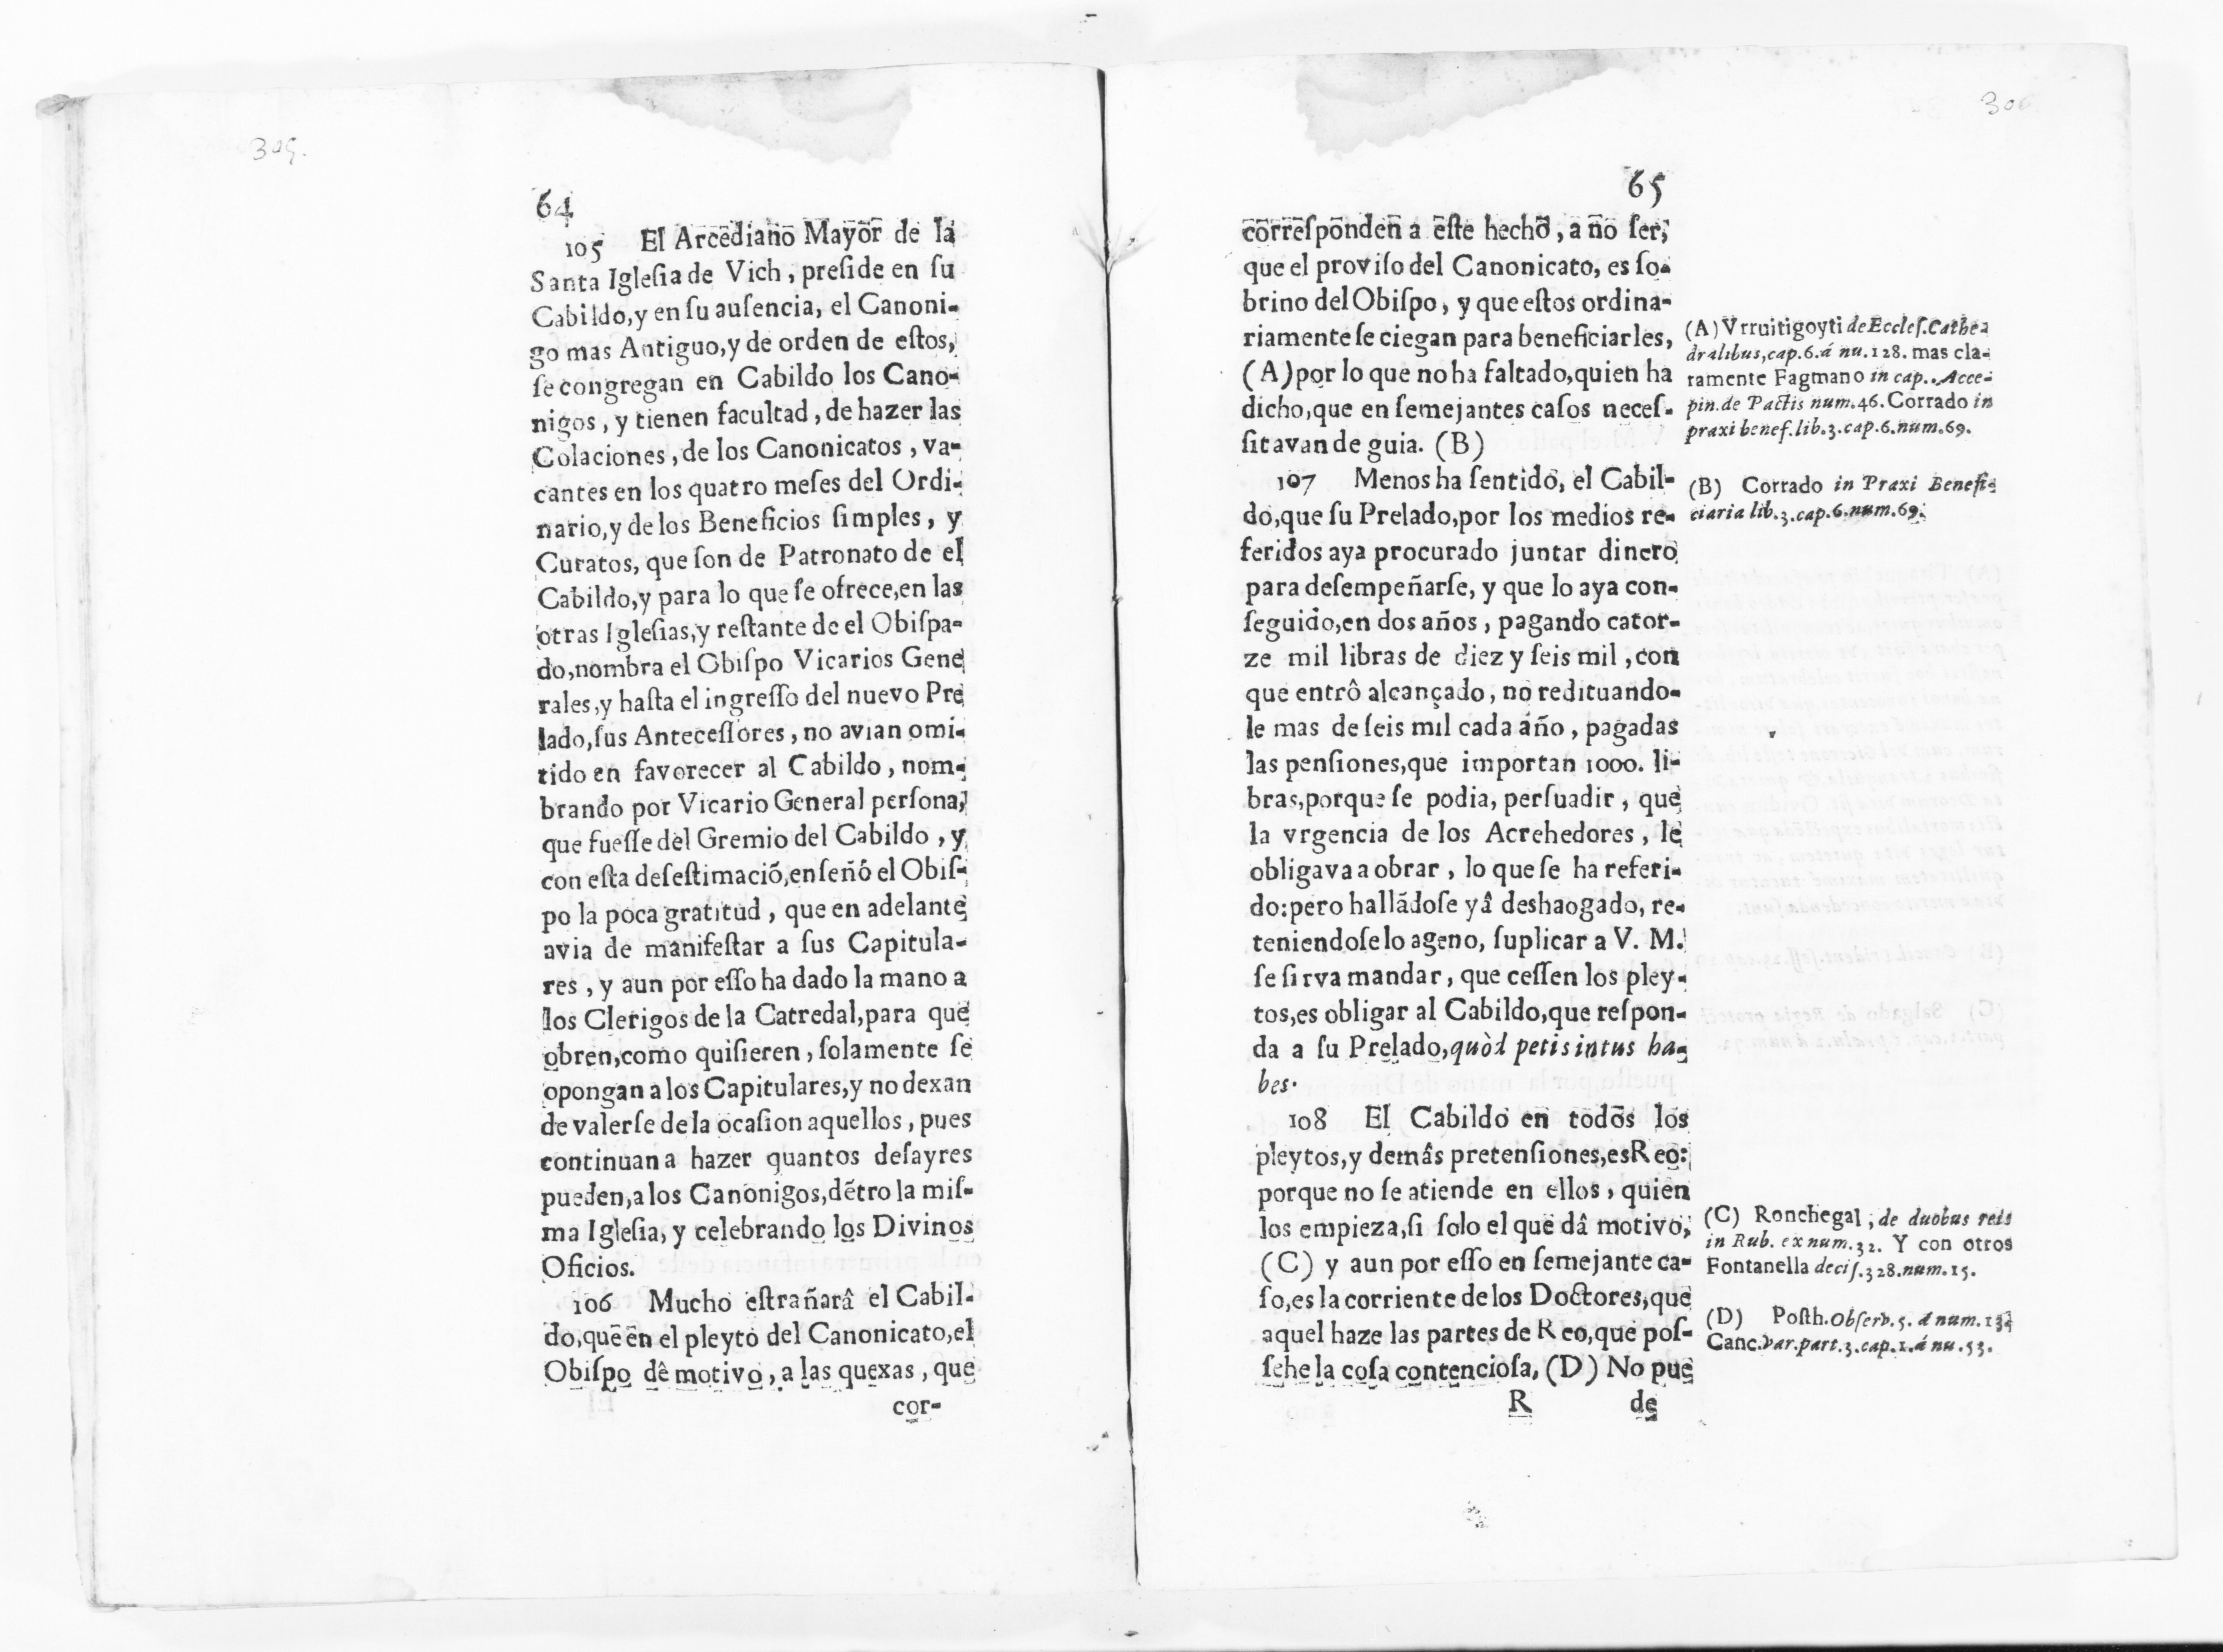 305.
64
105 El Arcediano Mayor de la
Santa Iglesia de Vich, preside en su
Cabildo,y en su ausencia, el Canoni-
go mas Antiguo,y de orden de estos,
se congregan en Cabildo los Cano-
nigos, y tienen facultad, de hazer las
Colaciones, de los Canonicatos, va-
cantes en los quatro meses del Ordi-
nario,y de los Beneficios simples, y
Curatos, que son de Patronato de el
Cabildo,y para lo que se ofrece,en las
otras Iglesias,y restante de el Obispa-
do,nombra el Obispo Vicarios Gene
rales,y hasta el ingresso del nuevo Pre
lado,sus Antecessores, no avian omi-
tido en favorecer al Cabildo, nom-
brando por Vicario General persona,
que fuesse del Gremio del Cabildo, y
con esta desestimació,enseñó el Obis-
po la poca gratitud, que en adelante
avia de manifestar a sus Capitula-
res, y aun por esso ha dado la mano a
los Clerigos de la Catredal,para que
obren,como quisieren, solamente se
opongan a los Capitulares,y no dexan
de valerse de la ocasion aquellos, pues
continuan a hazer quantos desayres
pueden,a los Canonigos,dẽtro la mis-
ma Iglesia, y celebrando los Divinos
Oficios.
106 Mucho estrañarâ el Cabil-
do,que en el pleyto del Canonicato,el
Obispo dê motivo, a las quexas, que
cor-
306
65
corresponden a este hecho, a no ser,
que el proviso del Canonicato, es so-
brino del Obispo, y que estos ordina-
riamente se ciegan para beneficiarles,
(A) por lo que no ha faltado,quien ha
dicho,que en semejantes casos neces-
sitavan de guia. (B)
107 Menos ha sentido, el Cabil-
do,que su Prelado,por los medios re-
feridos aya procurado juntar dinero
para desempeñarse, y que lo aya con-
seguido,en dos años, pagando cator-
ze mil libras de diez y seis mil, con
que entrô alcançado, no redituando-
le mas de seis mil cada año, pagadas
las pensiones,que importan 1000. li-
bras,porque se podia, persuadir, que
la vrgencia de los Acrehedores, le
obligava a obrar, lo que se ha referi-
do:pero hallãdose yâ deshaogado, re-
teniendose lo ageno, suplicar a V. M.
se sirva mandar, que cessen los pley-
tos,es obligar al Cabildo,que respon-
da a su Prelado,quòd petis intus ha-
bes.
108 El Cabildo en todos los
pleytos,y demâs pretensiones,es Reo:
porque no se atiende en ellos, quien
los empieza,si solo el que dâ motivo,
(C) y aun por esso en semejante ca-
so,es la corriente de los Doctores,que
aquel haze las partes de Reo,que pos-
sehe la cosa contenciosa, (D) No pue
R de
(A) Vrruitigoyti de Eccles. Cathe
dralibus,cap.6.á nu.128. mas cla-
ramente Fagmano in cap..Acce-
pin.de Pactis num.46.Corrado in
praxi benef.lib.3.cap.6.num.69.
(B) Corrado in Praxi Benefi-
ciaria lib.3.cap.6.num.69.
(C) Ronchegal, de duobus reis
in Rub. ex num.32. Y con otros
Fontanella decis.328.num.15.
(D) Posth.Observ.5. á num.
Canc.var.part.3.cap.1.á nu.53.